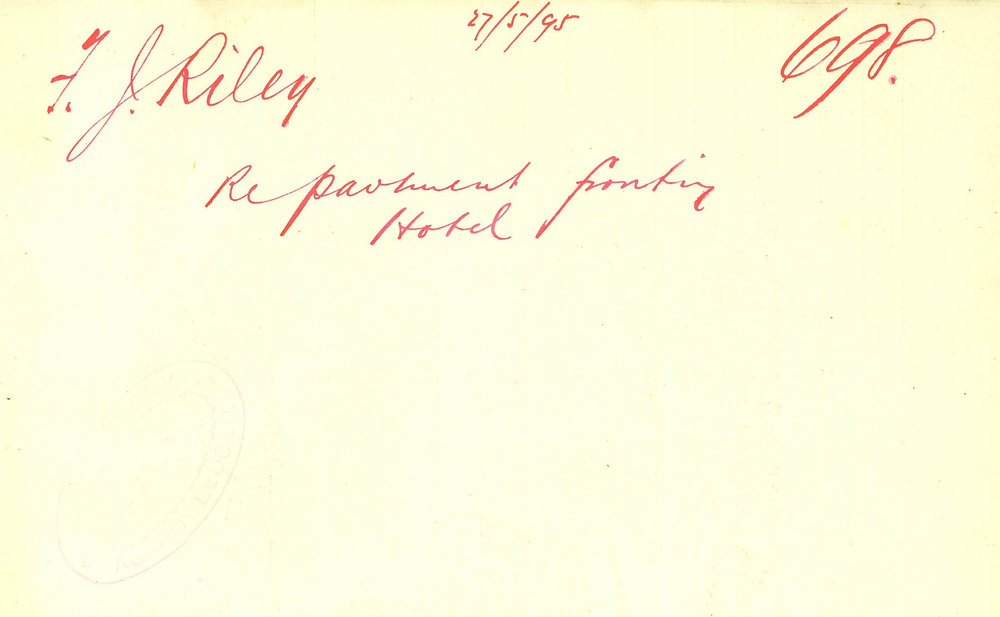 27/5/95
F. J. Riley
698.
Re pavement fronting
Hotel